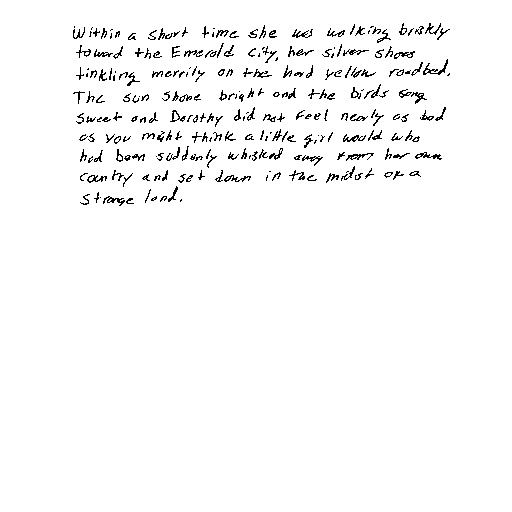 Within a short time she was walking briskly
toward the Emerald City, her silver shoes
tinkling merrily on the hard yellow roadbed.
The sun shone bright and the birds sang
sweet and Dorothy did not feel nearly as bad
as you might think a little girl would who
had been suddenly whisked away from her own
country and set down in the midst of a
strange land.